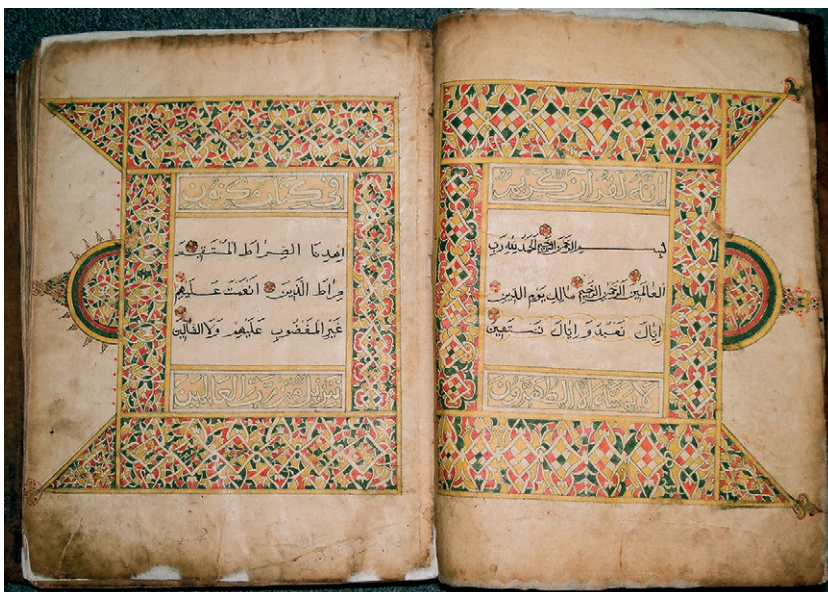 إنه لقرآن كريم
بسم الله الرحمن الرحيم الحمد لله رب
العالمين الرحمن الرحيم مالك يوم الدين
إياك نعبد وإياك نستعين
لا يمسه إلا المطهرون
في كتاب مكنون
اهدنا الصراط المستقيم
صراط الذين أنعمت عليهم
غير المغضوب عليهم ولا الضالين
تنزيل من رب العالمين